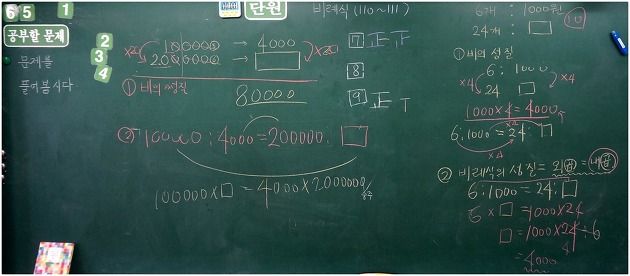 6 5 1
단원
비례식 (110~111)
공부할 문제
문제를
풀어 봅시다
2
3
4
×20
100000 → 4000
2000000 → □
×20
① 비의 성질
80000
② 100000 : 4000 = 2000000 : □
100000 × □ = 4000 × 2000000
7 正 正
8
9 正 T
6개 : 1000원
24개 : □
10
① 비의 성질
6 : 1000
×4 24 □ ×4
1000×4=4000
×4
6:1000 = 24: □
×4
② 비례식의 성질 = 외항곱 = 내항곱
6 : 1000 = 24 : □
6 × □ = 1000×24
□ = 1000×24÷6
4
= 4000